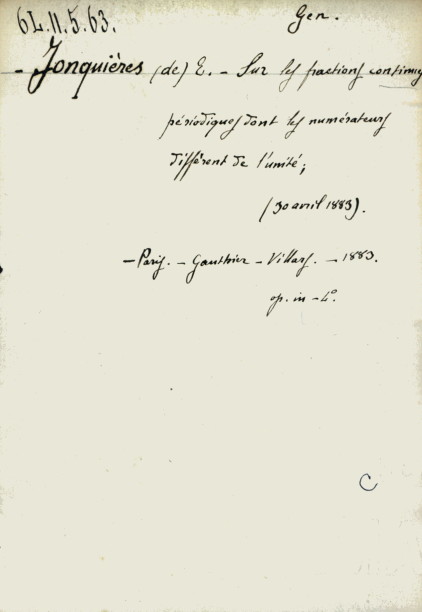 6L.11.5.63.
Gen.
- Jonquiéres (de) E. - Sur les fractions continues
périodiques dont les numérateurs
différent de l'unité;
(30 avril 1883).
- Paris. - Gauthier - Villars. - 1883.
op. in - 4°.
C